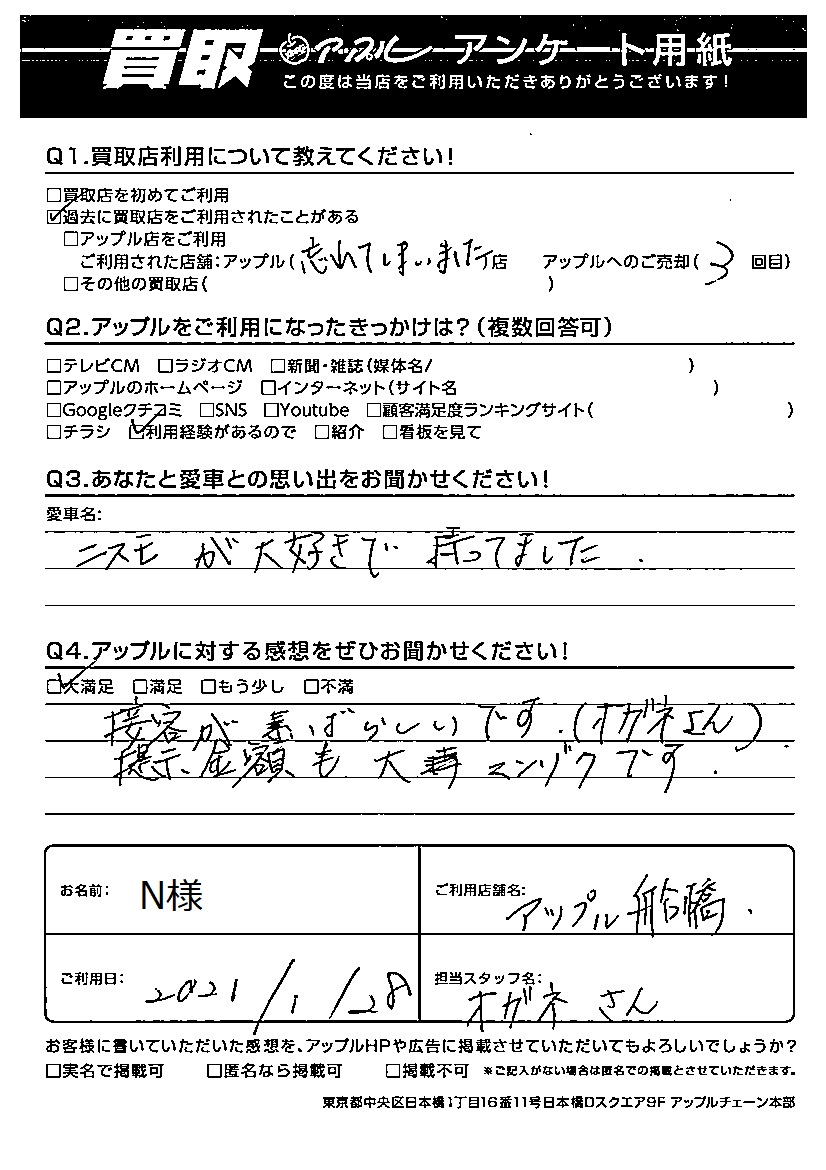 買取 アップル アンケート用紙
この度は当店をご利用いただきありがとうございます!
Q1.買取店利用について教えてください!
□買取店を初めてご利用
☑過去に買取店をご利用されたことがある
□アップル店をご利用
ご利用された店舗:アップル(忘れてしまいました店 アップルへのご売却(3 回目)
□その他の買取店( )
Q2.アップルをご利用になったきっかけは?(複数回答可)
□テレビCM □ラジオCM □新聞・雑誌(媒体名/ )
□アップルのホームページ □インターネット(サイト名 )
□Googleクチコミ □SNS □Youtube □顧客満足度ランキングサイト( )
□チラシ ☑利用経験があるので □紹介 □看板を見て
Q3.あなたと愛車との思い出をお聞かせください!
愛車名:
ニスモ が 大好きで 乗ってました.
Q4.アップルに対する感想をぜひお聞かせください!
☑大満足 □満足 □もう少し □不満
接客が 素ばらしいです.(オガネさん)
提示金額も 大 マンゾクです.
お名前: N様
ご利用店舗名: アップル 船橋.
ご利用日: 2021/1/28
担当スタッフ名: オガネ さん
お客様に書いていただいた感想を、アップルHPや広告に掲載させていただいてもよろしいでしょうか?
□実名で掲載可 □匿名なら掲載可 □掲載不可 ※ご記入がない場合は匿名での掲載とさせていただきます。
東京都中央区日本橋1丁目16番11号日本橋Dスクエア9F アップルチェーン本部